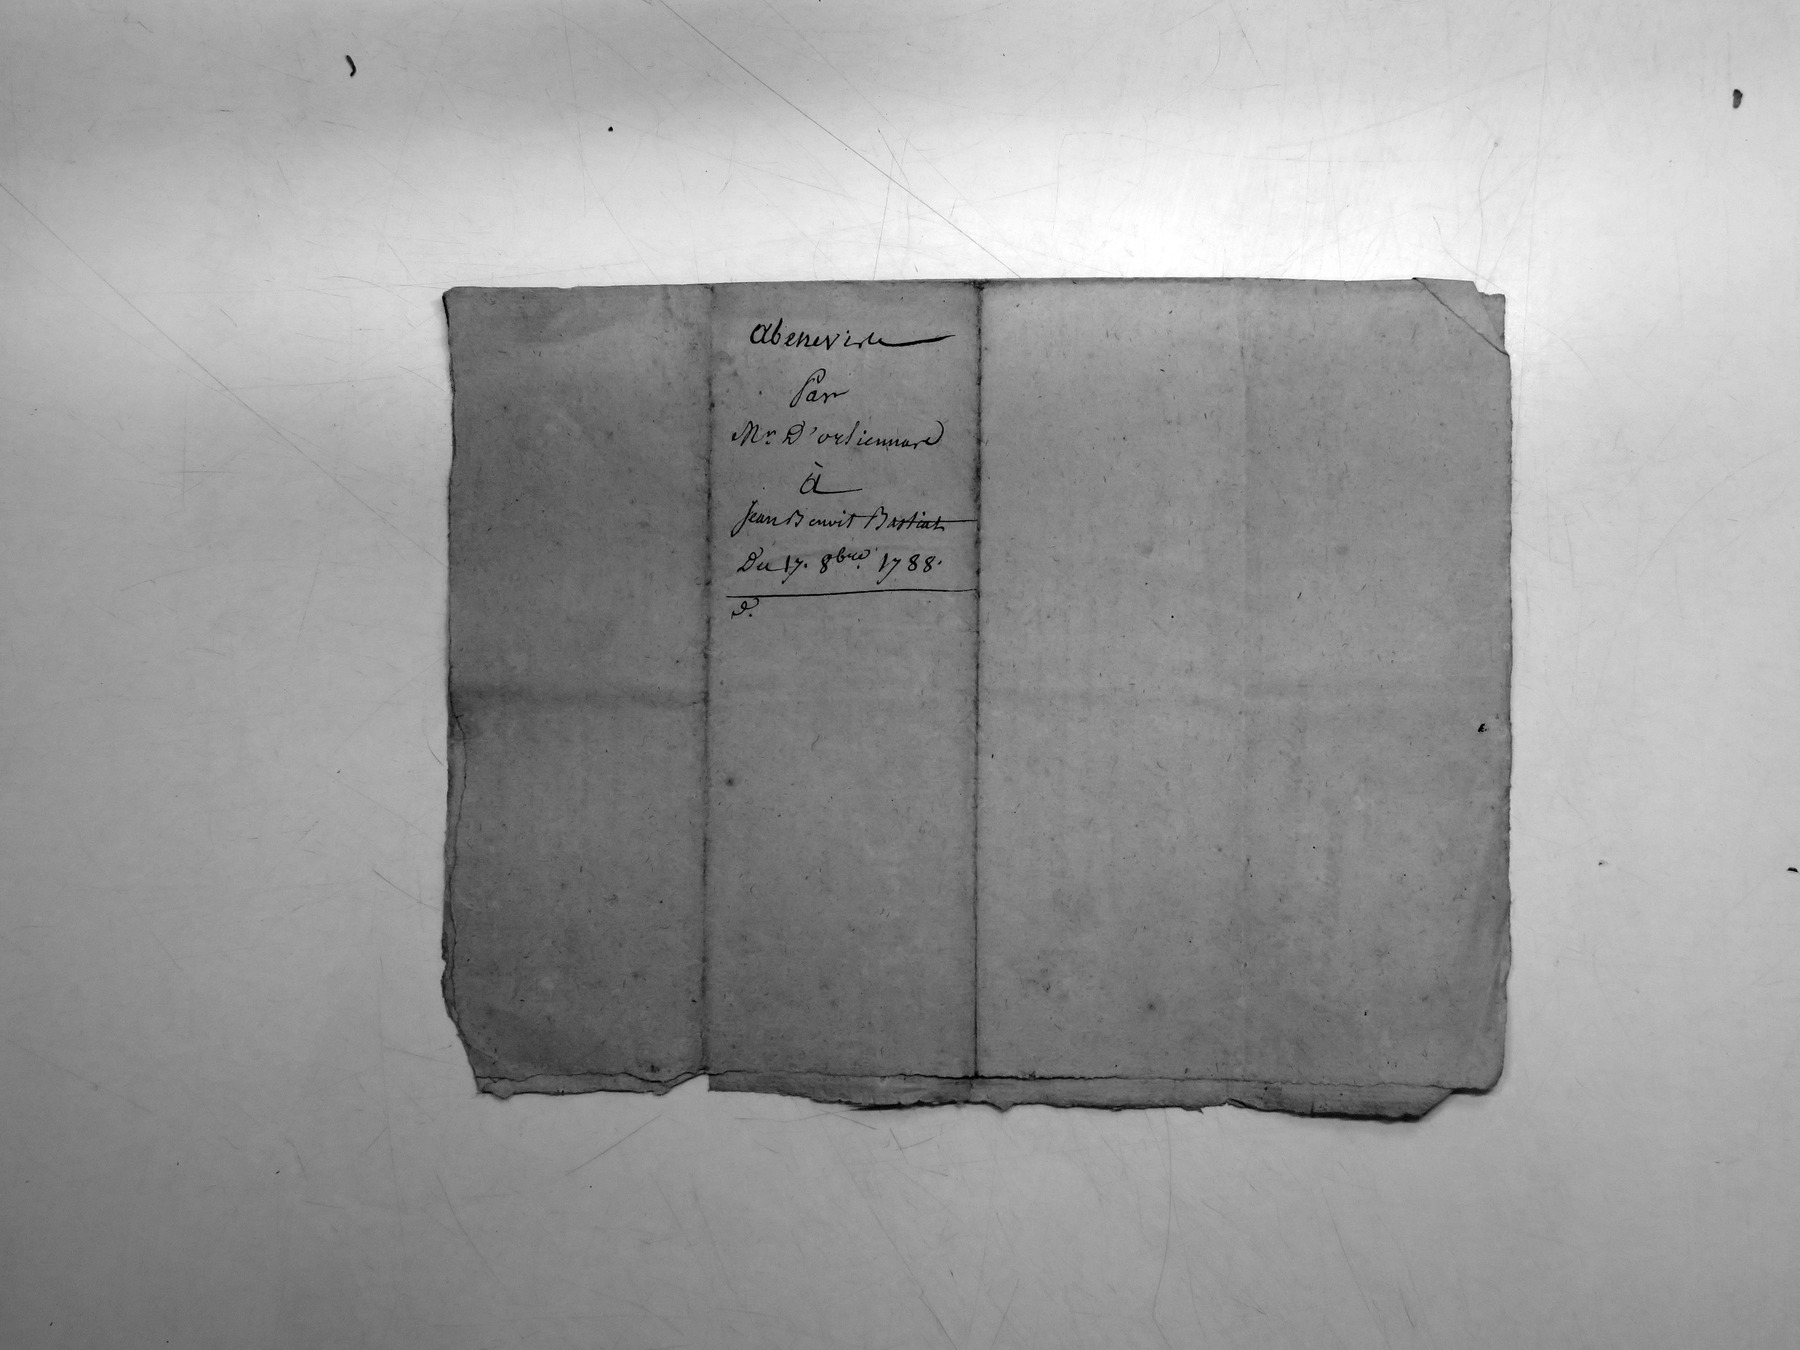 Abenevise
Par
Mr. D'ortiennare
à
Jean Benoit Bastiat
Du 17. 8bre. 1788.
d.